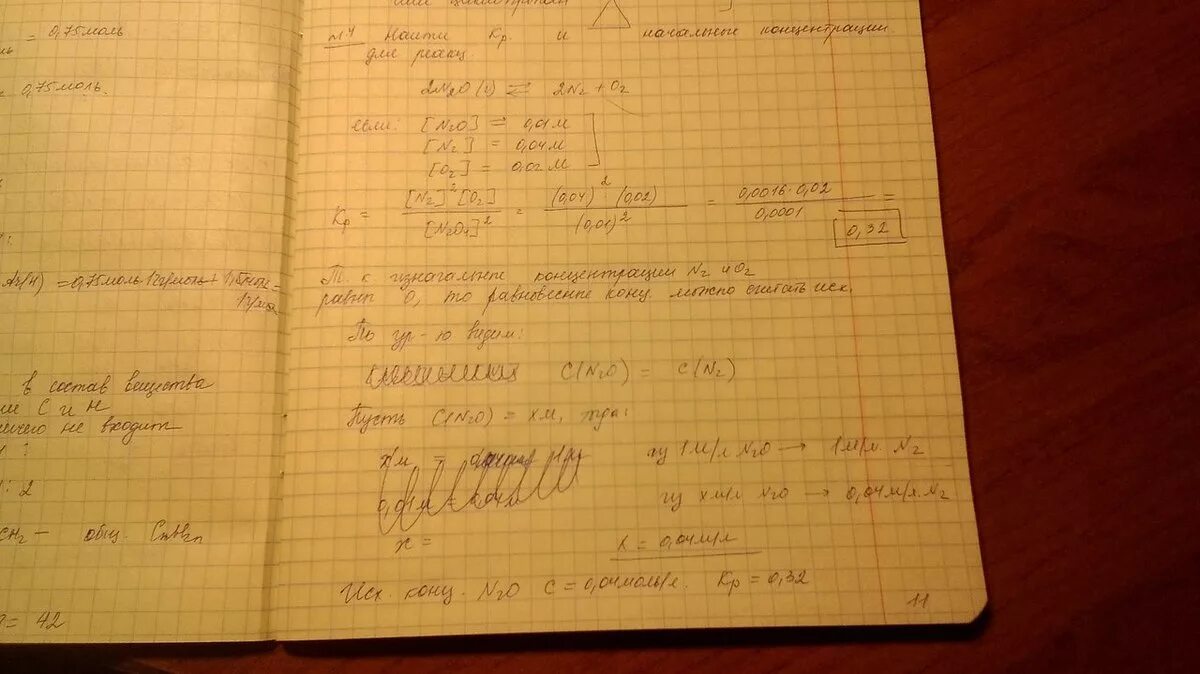 = 0,75моль
= 0,75моль.
Ar(H) = 0,75моль·12г/моль +
1г/моль
в состав вещества
C и H
ничего не входит
: 2
CH₂ — общ. CnH2n
= 42
№4 Найти Kp. и начальные концентрации
для реакц.
2N2O (г) ⇌ 2N₂ + O₂
если: [N2O] = 0,01М
[N₂] = 0,04М
[O₂] = 0,02М
Kp = [N₂]²[O₂] / [N2O4]² = (0,04)² · (0,02) / (0,01)² = 0,0016·0,02 / 0,0001 = 0,32
Т. к изначальные концентрации N₂ и O₂
равны 0, то равновесные конц. можно считать исх.
По ур-ю видим:
C(N2O) = C(N₂)
Пусть C(N2O) = xм, тгда:
xм =
0,01м = 0,04м
x =
из 1М/л N2O → 1М/л. N₂
из xм/л N2O → 0,04м/л. N₂
x = 0,04м/л
Исх. конц. N2O C = 0,04моль/л. Kp = 0,32
11